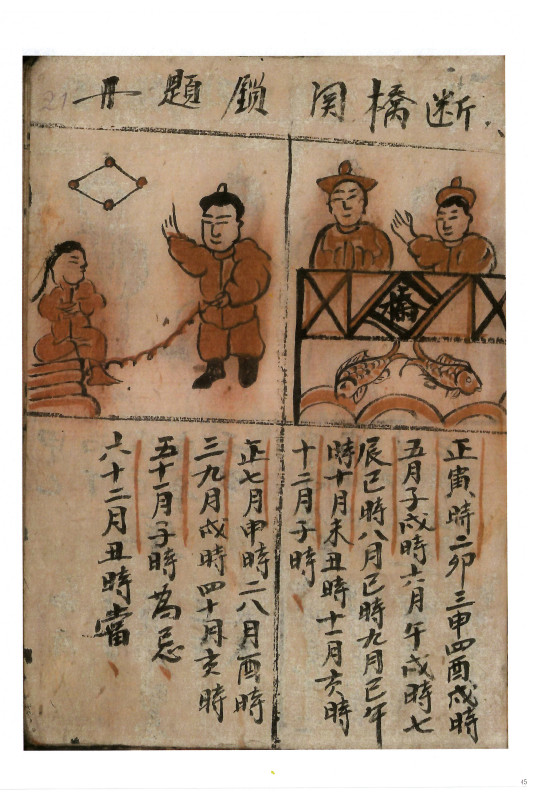 断橋関鎖題冊
21
橋
正寅時二卯三申四酉戌時
五月子戌時六月午戌時七
辰巳時八月巳時九月巳午
時十月未丑時十一月亥時
十二月子時
正七月申時二八月酉時
三九月戌時四十月亥時
五十一月子時為忌
六十二月丑時當
45